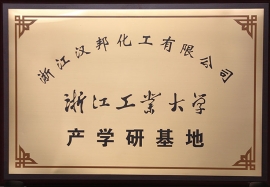 浙江汉邦化工有限公司
浙江工業大学
产学研基地